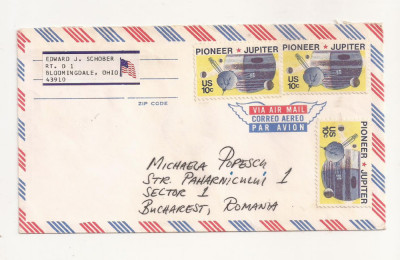 EDWARD J. SCHOBER
RT. # 1
BLOOMINGDALE, OHIO
43910
ZIP CODE
PIONEER ★ JUPITER
US
10c
PIONEER ★ JUPITER
US
10c
VIA AIR MAIL
CORREO AEREO
PAR AVION
PIONEER ★ JUPITER
US
10c
MICHAELA POPESCU
STR. PAHARNICULUI 1
SECTOR 1
BUCHAREST, ROMANIA